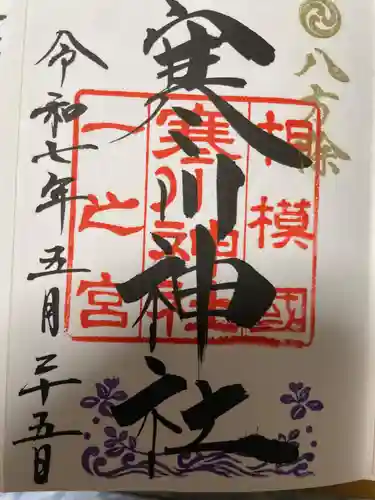 八方除
寒川神社
相模國
寒川神社
一之宮
令和七年五月二十五日